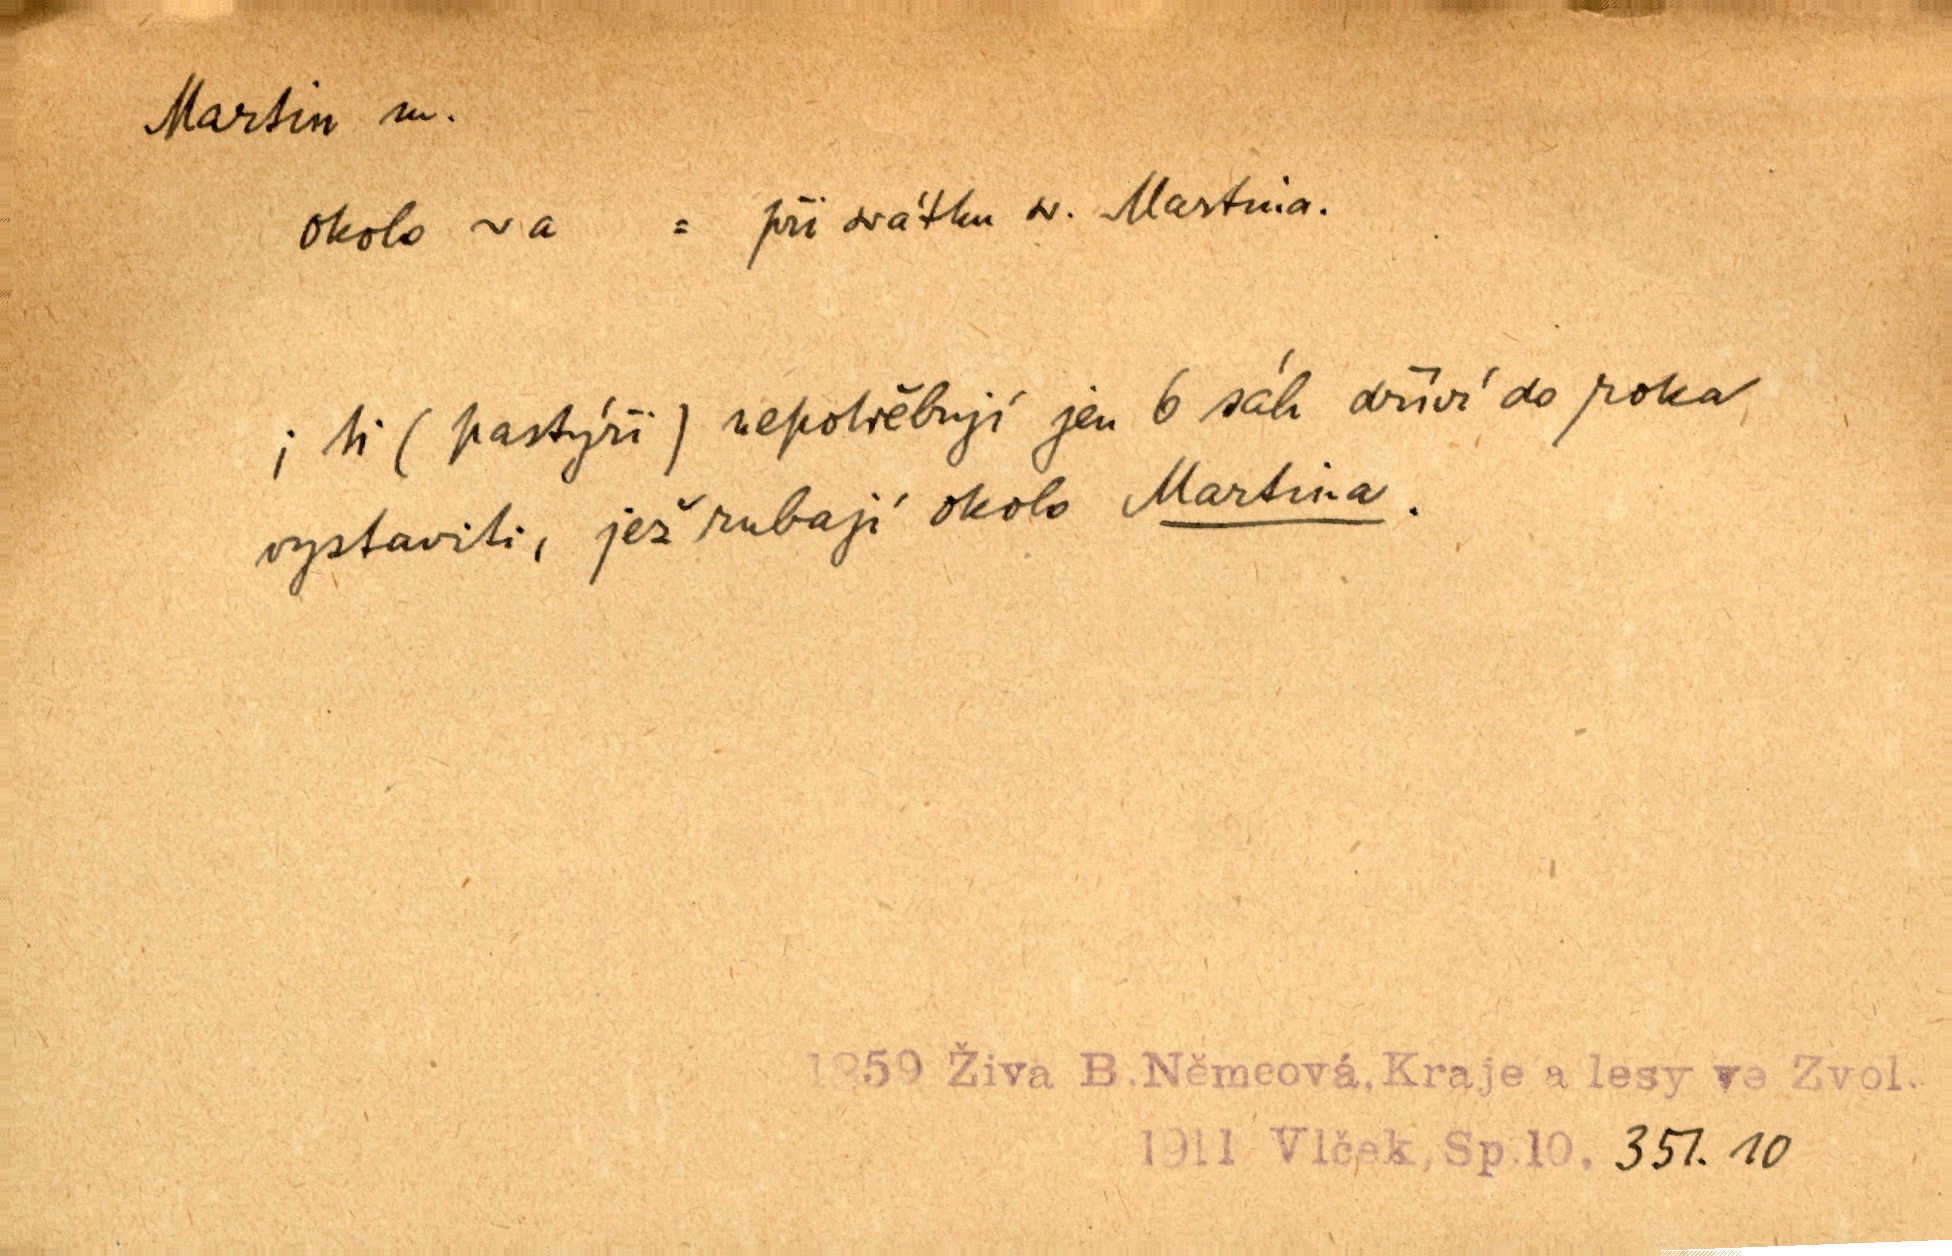 Martin m.
okolo ~a = při svátku sv. Martina.
; ti (pastýři) nepotřebují jen 6 sáh dříví do roka
vystaviti, jež rubají okolo Martina.
1859 Živa B.Němcová,Kraje a lesy ve Zvol.
1911 Vlček,Sp.10. 351. 10